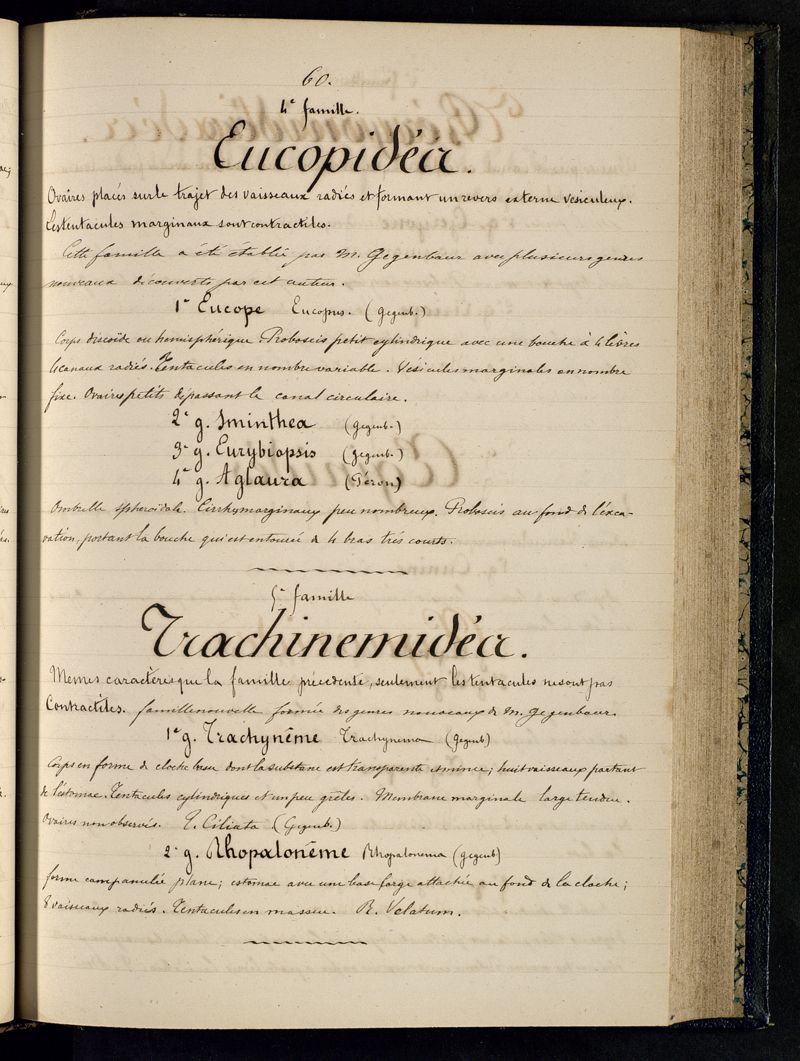 60.
4e famille.
Eucopidéa.
Ovaires placés sur le trajet des vaisseaux radiés et formant un revers externe vésiculeux.
Les tentacules marginaux sont contractiles.
Cette famille a été établie par M. Gegenbaur avec plusieurs genres
nouveaux découverts par cet auteur.
1er Eucope Eucopus. (Gegenb.)
Corps discoïde ou hemisphérique Proboscis petit cylindrique avec une bouche à 4 lèvres
4 canaux radiés. Tentacules en nombre variable. Vésicules marginales en nombre
fixe. Ovaires petits dépassant le canal circulaire.
2e g. Sminthea (Gegenb.)
3e g. Eurybiopsis (Gegenb.)
4e g. Aglaura (Péron)
Ombrelle spheroïdale. Cirrhes marginaux peu nombreux. Proboscis au fond de l'exca-
vation, portant la bouche qui est entourée de 4 bras très courts.
5e famille
Trachinemidéa.
Memes caractères que la famille précedente, seulement les tentacules ne sont pas
Contractiles. famille nouvelle formée des genres nouveaux de M. Gegenbaur.
1er g. Trachynême Trachynema (Gegenb)
Corps en forme de cloche dont la substance est transparente et mince; huit vaisseaux partant
de l'estomac. Tentacules cylindriques et un peu grêles. Membrane marginale large tendue.
Ovaires non observés. T. Ciliata (Gegenb.)
2e g. Rhopalonême Rhopalonema (Gegenb)
forme campanulée plane; estomac avec une base large attachée au fond de la cloche;
8 vaisseaux radiés. Tentacules en massue. R. Velatum.